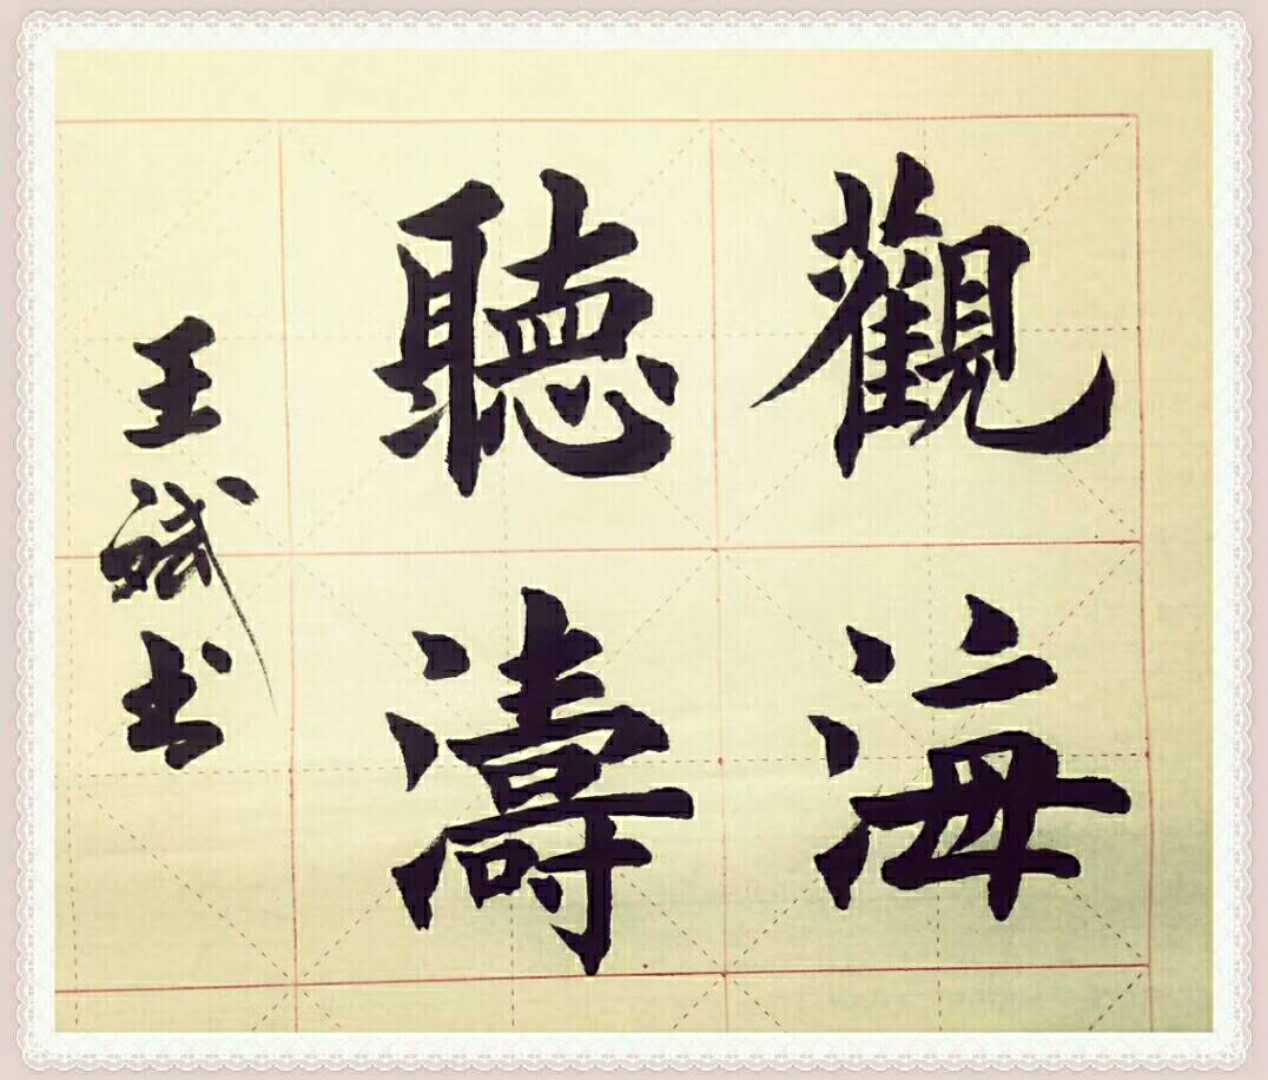 觀海
聽濤
王斌书